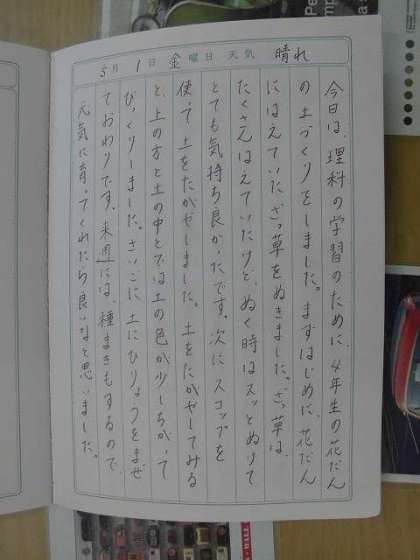 5月1日金曜日 天気 晴れ
今日は、理科の学習のために、4年生の花だん
の土づくりをしました。まずはじめに、花だん
にはえていたざっ草をぬきました。ざっ草は、
たくさんはえていたけど、ぬく時はスッとぬけて
とても気持ち良かったです。次にスコップを
使って土をたがやしました。土をたがやしてみる
と、上の方と土の中とでは土の色が少しちがって
びっくりしました。さいごに土にひりょうをまぜ
ておわりです。来週には、種まきもするので、
元気に育ってくれたら良いなと思いました。